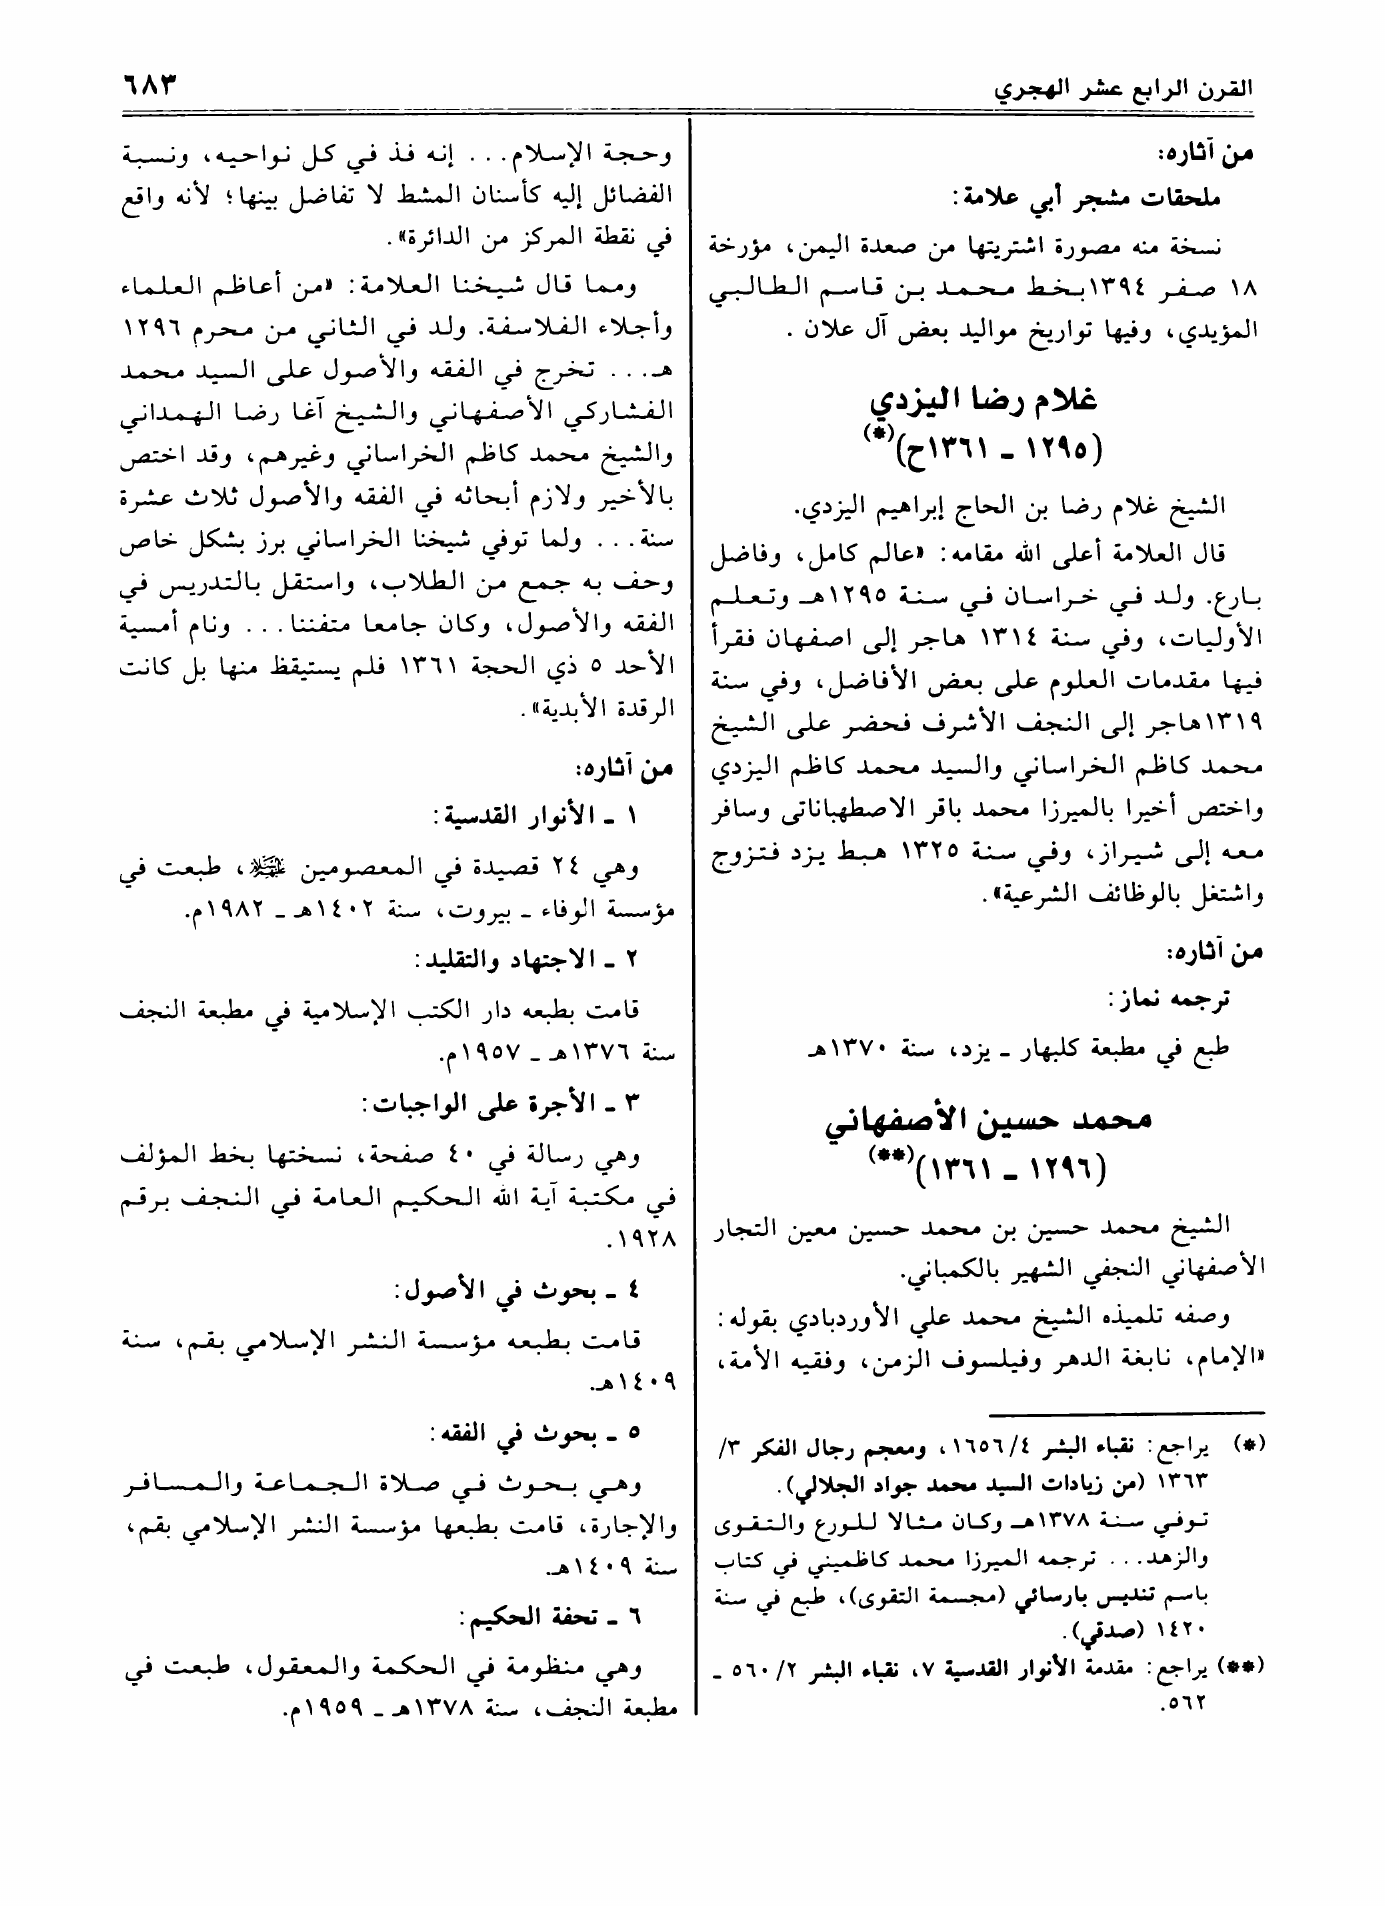 القرن الرابع عشر الهجري
٦٨٣
من آثاره:
ملحقات مشجر أبي علامة:
نسخة منه مصورة اشتريتها من صعدة اليمن، مؤرخة
١٨ صفر ١٣٩٤بخط محمد بن قاسم الطالبي
المؤيدي، وفيها تواريخ مواليد بعض آل علان .
غلام رضا اليزدي
(١٢٩٥ ـ ١٣٦١ح)(*)
الشيخ غلام رضا بن الحاج إبراهيم اليزدي.
قال العلامة أعلى الله مقامه: «عالم كامل، وفاضل
بارع. ولد في خراسان في سنة ١٢٩٥هـ وتعلم
الأوليات، وفي سنة ١٣١٤ هاجر إلى اصفهان فقرأ
فيها مقدمات العلوم على بعض الأفاضل، وفي سنة
١٣١٩هاجر إلى النجف الأشرف فحضر على الشيخ
محمد كاظم الخراساني والسيد محمد كاظم اليزدي
واختص أخيرا بالميرزا محمد باقر الاصطهباناتى وسافر
معه إلى شيراز، وفي سنة ١٣٢٥ هبط يزد فتزوج
واشتغل بالوظائف الشرعية».
من آثاره:
ترجمه نماز:
طبع في مطبعة كلبهار ـ يزد، سنة ١٣٧٠هـ
محمد حسين الأصفهاني
(١٢٩٦ ـ ١٣٦١)(**)
الشيخ محمد حسين بن محمد حسين معين التجار
الأصفهاني النجفي الشهير بالكمباني.
وصفه تلميذه الشيخ محمد علي الأوردبادي بقوله:
«الإمام، نابغة الدهر وفيلسوف الزمن، وفقيه الأمة،
(*) يراجع: نقباء البشر ٤/ ١٦٥٦، ومعجم رجال الفكر ٣/
١٣٦٣ (من زيادات السيد محمد جواد الجلالي).
توفي سنة ١٣٧٨هـ وكان مثالا للورع والتقوى
والزهد... ترجمه الميرزا محمد كاظميني في كتاب
باسم تنديس بارسائي (مجسمة التقوى)، طبع في سنة
١٤٢٠ (صدقي).
(**) يراجع: مقدمة الأنوار القدسية ٧، نقباء البشر ٢/ ٥٦٠ ـ
٥٦٢.
وحجة الإسلام... إنه فذ في كل نواحيه، ونسبة
الفضائل إليه كأسنان المشط لا تفاضل بينها؛ لأنه واقع
في نقطة المركز من الدائرة».
ومما قال شيخنا العلامة: «من أعاظم العلماء
وأجلاء الفلاسفة. ولد في الثاني من محرم ١٢٩٦
هـ... تخرج في الفقه والأصول على السيد محمد
الفشاركي الأصفهاني والشيخ آغا رضا الهمداني
والشيخ محمد كاظم الخراساني وغيرهم، وقد اختص
بالأخير ولازم أبحاثه في الفقه والأصول ثلاث عشرة
سنة... ولما توفي شيخنا الخراساني برز بشكل خاص
وحف به جمع من الطلاب، واستقل بالتدريس في
الفقه والأصول، وكان جامعا متفننا... ونام أمسية
الأحد ٥ ذي الحجة ١٣٦١ فلم يستيقظ منها بل كانت
الرقدة الأبدية».
من آثاره:
١ ـ الأنوار القدسية:
وهي ٢٤ قصيدة في المعصومين ، طبعت في
مؤسسة الوفاء ـ بيروت، سنة ١٤٠٢هـ ـ ١٩٨٢م.
٢ ـ الاجتهاد والتقليد:
قامت بطبعه دار الكتب الإسلامية في مطبعة النجف
سنة ١٣٧٦هـ ـ ١٩٥٧م.
٣ ـ الأجرة على الواجبات:
وهي رسالة في ٤٠ صفحة، نسختها بخط المؤلف
في مكتبة آية الله الحكيم العامة في النجف برقم
١٩٢٨.
٤ ـ بحوث في الأصول:
قامت بطبعه مؤسسة النشر الإسلامي بقم، سنة
١٤٠٩هـ.
٥ ـ بحوث في الفقه:
وهي بحوث في صلاة الجماعة والمسافر
والإجارة، قامت بطبعها مؤسسة النشر الإسلامي بقم،
سنة ١٤٠٩هـ.
٦ ـ تحفة الحكيم:
وهي منظومة في الحكمة والمعقول، طبعت في
مطبعة النجف، سنة ١٣٧٨هـ ـ ١٩٥٩م.